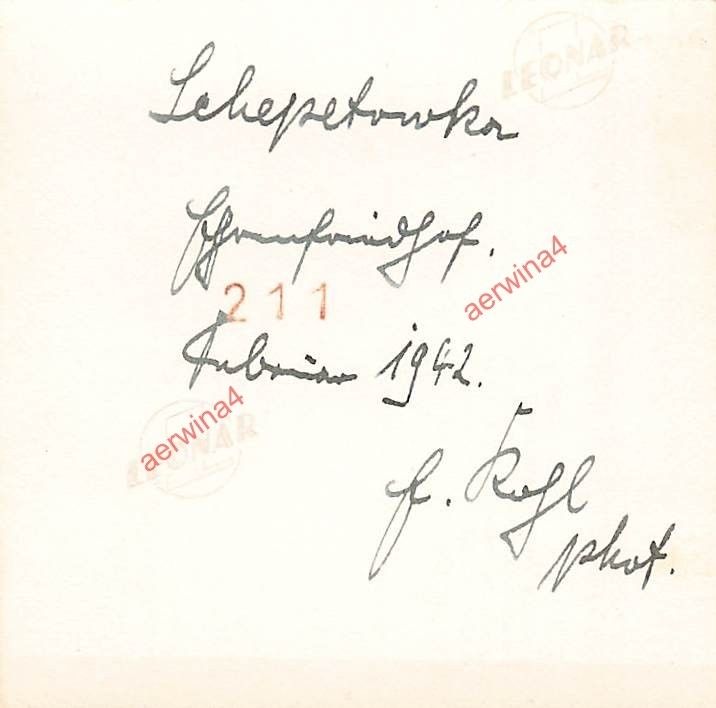 LEONAR
Schepetowka
Ehrenfriedhof.
aerwina4
211
Februar 1942.
aerwina4
LEONAR
Kohl
phot.